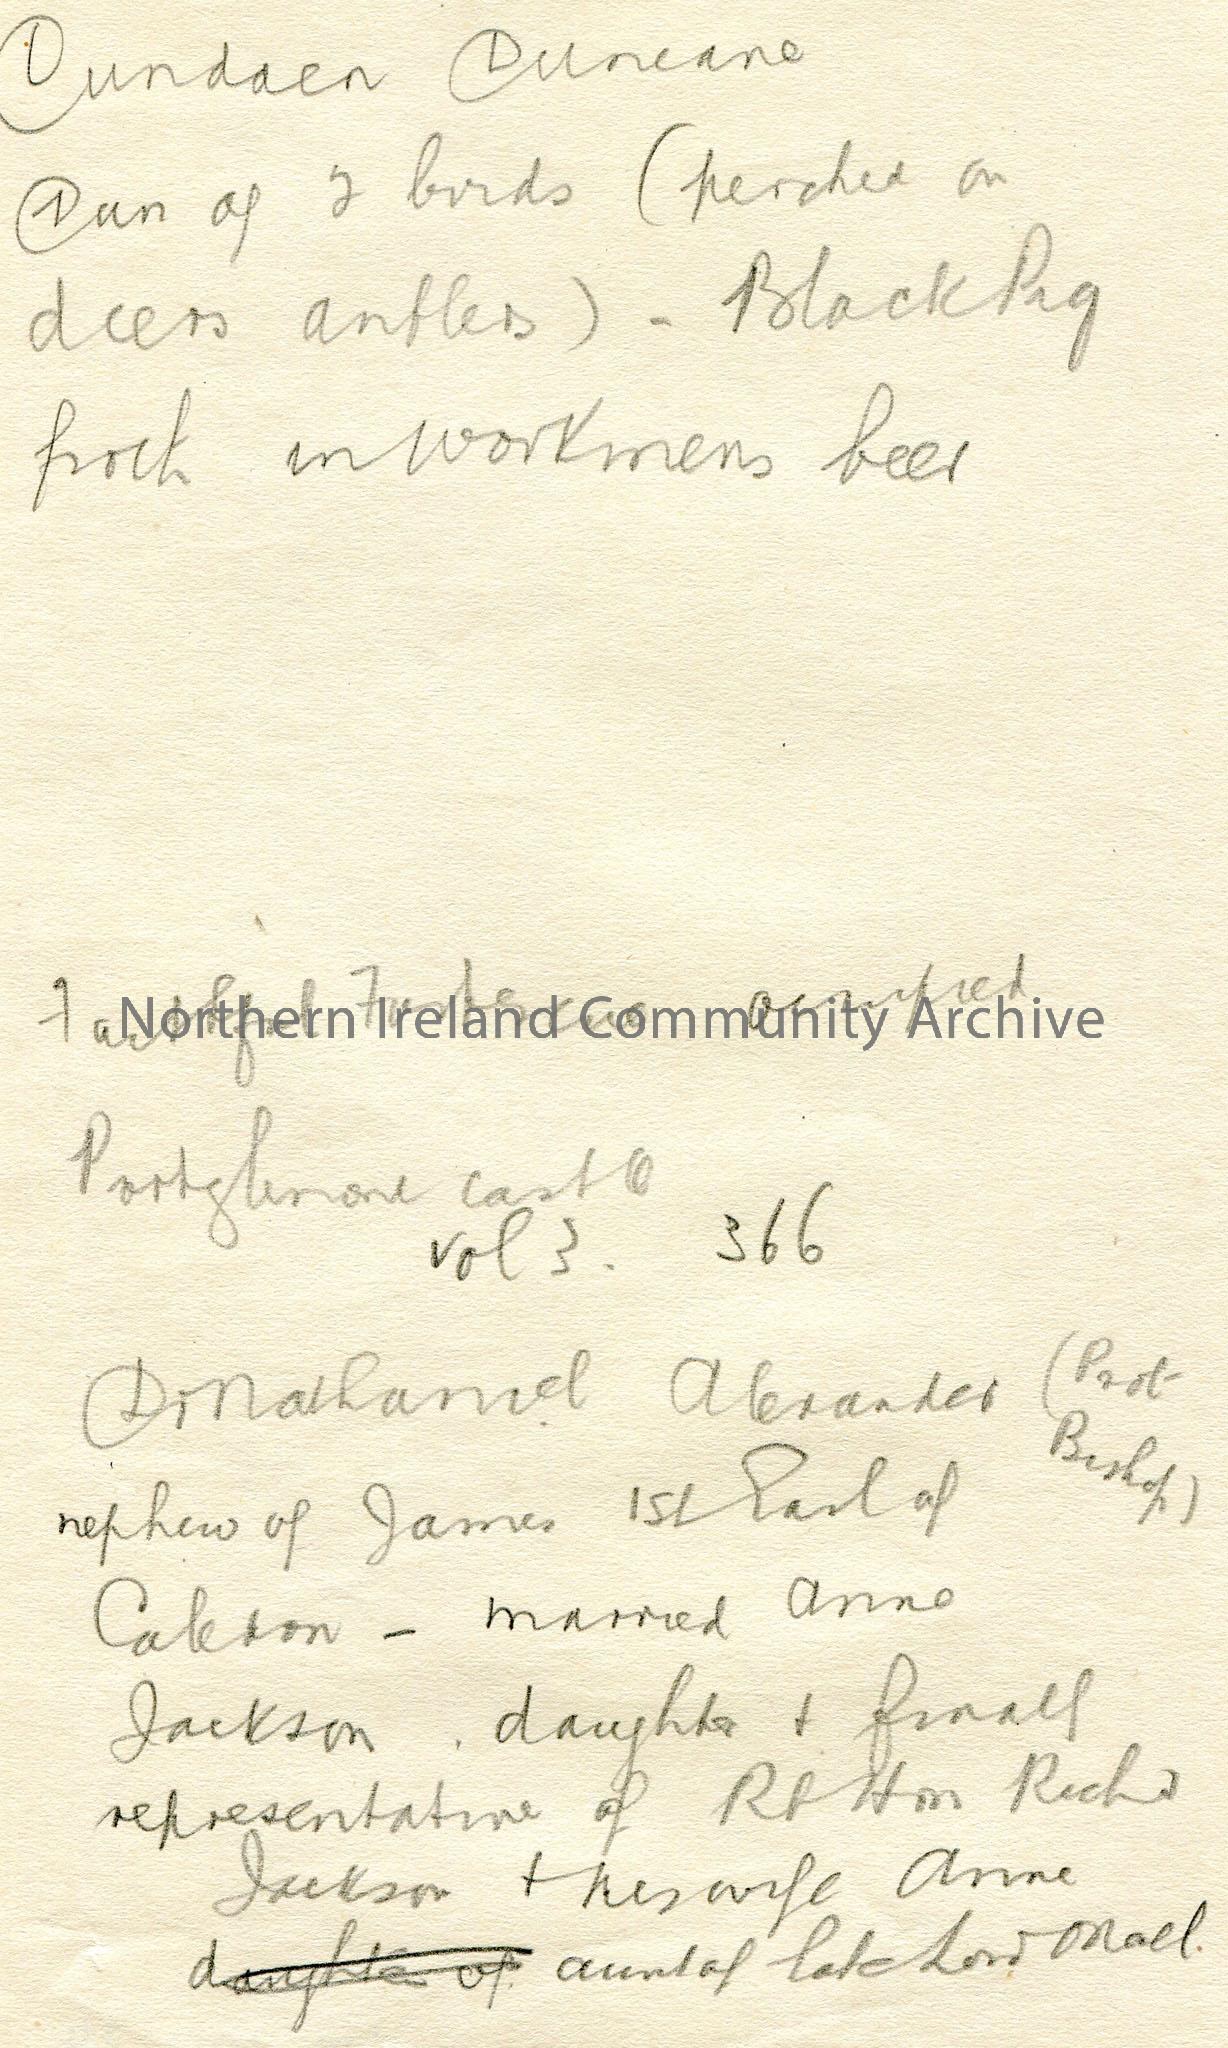 Dundaen Duneane
Dun of 2 birds (perched on
deers antlers) - Black Pig
froth in Workmens beer
Northern Ireland Community Archive
occupied
Portglenone castle
vol 3. 366
Dr Nathaniel Alexander (Prot
Bishop)
nephew of James 1st Earl of
Caledon - married Anne
Jackson. daughter +
representative of Rt Hon Richd
Jackson + his wife Anne
daughter of aunt of late Lord ONeill.